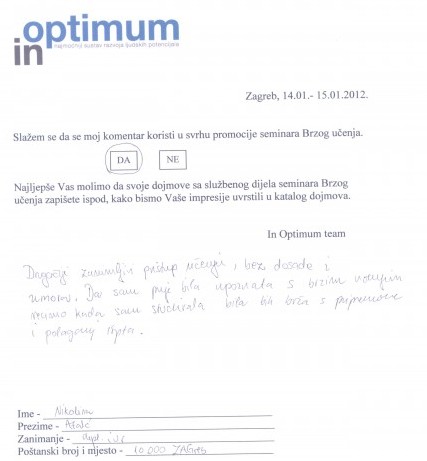 in optimum
najmoćniji sustav razvoja ljudskih potencijala
Zagreb, 14.01.- 15.01.2012.
Slažem se da se moj komentar koristi u svrhu promocije seminara Brzog učenja.
DA NE
Najljepše Vas molimo da svoje dojmove sa službenog dijela seminara Brzog
učenja zapišete ispod, kako bismo Vaše impresije uvrstili u katalog dojmova.
In Optimum team
Drugačiji zanimljiv pristup učenju, bez dosade i
umora. Da sam prije bila upoznata s brzim
kada sam studirala bila bih brža s
i polaganj ispita.
Ime - Nikolina
Prezime -
Zanimanje - dipl. iur.
Poštanski broj i mjesto - 10 000 Zagreb